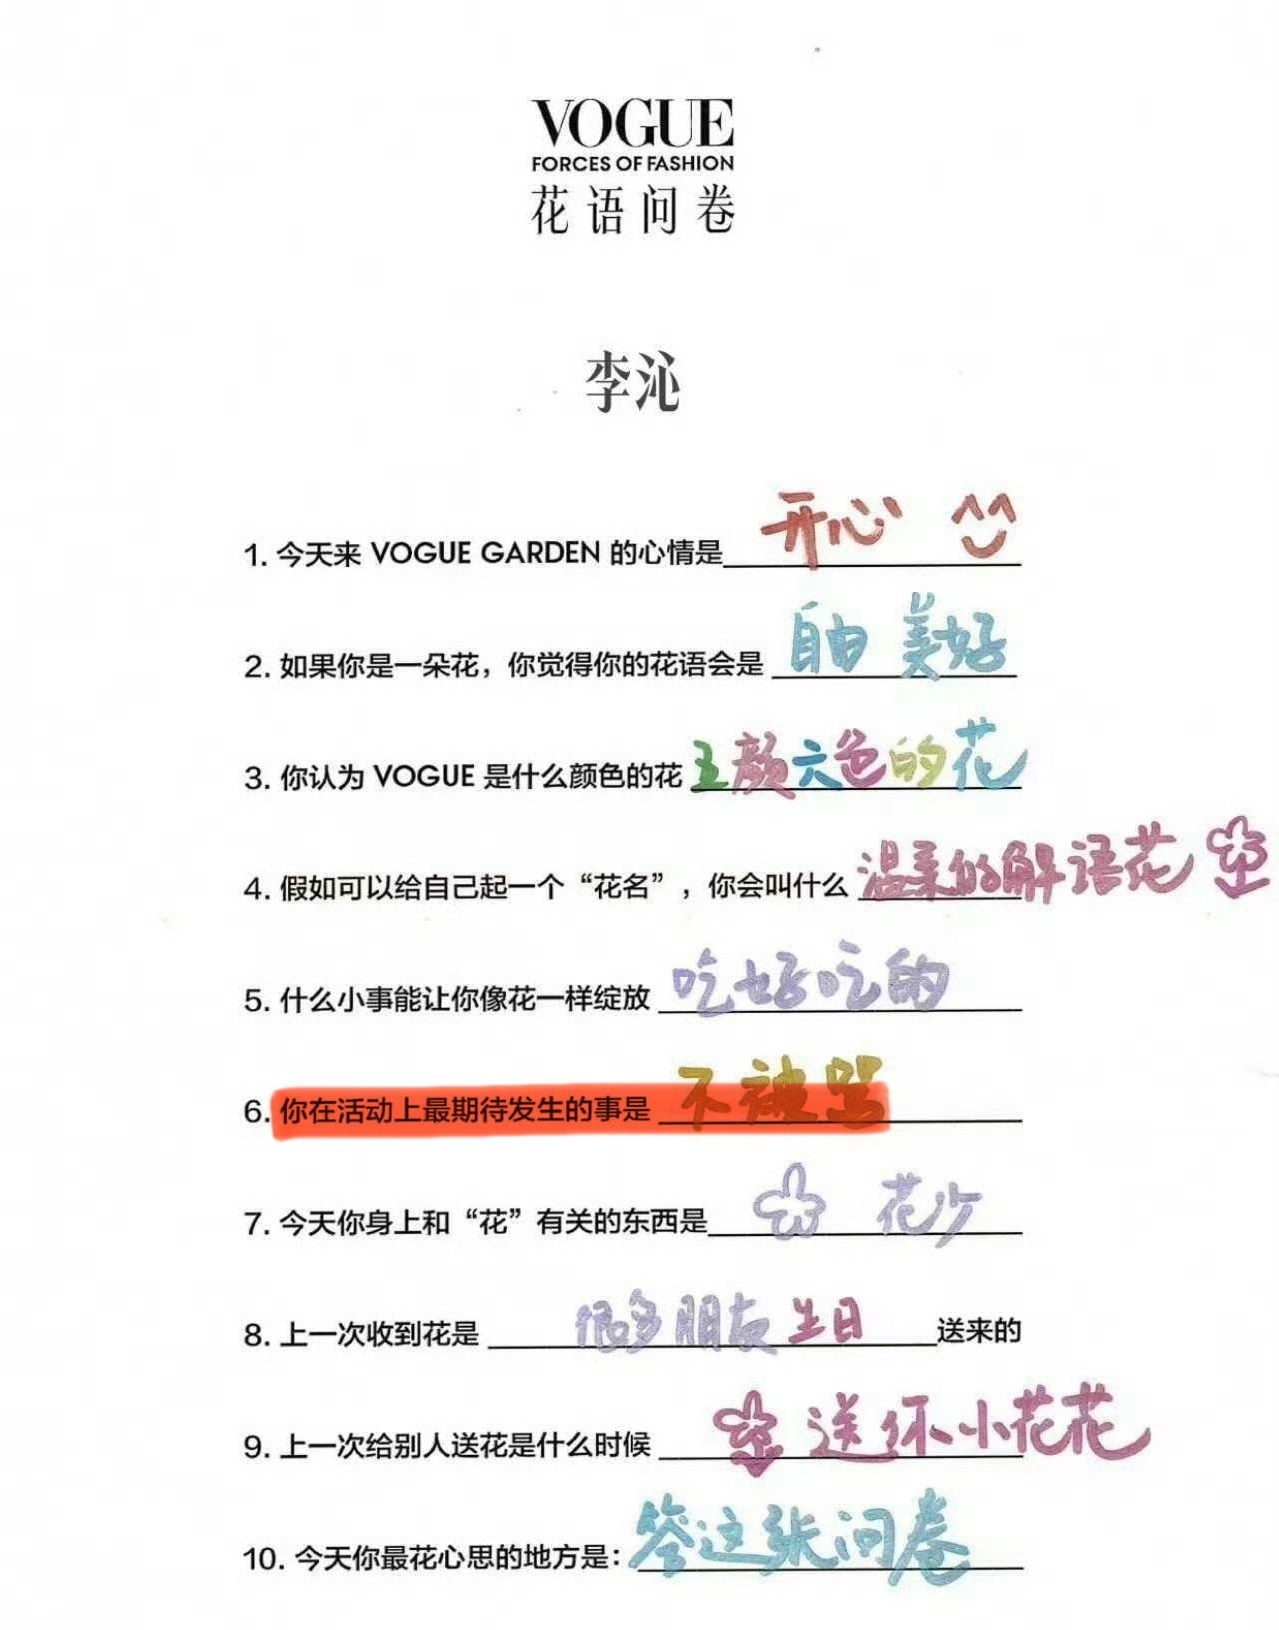 VOGUE
FORCES OF FASHION
花语问卷
李沁
1. 今天来 VOGUE GARDEN 的心情是 开心
2. 如果你是一朵花，你觉得你的花语会是 自由 美好
3. 你认为 VOGUE 是什么颜色的花 五颜六色的花
4. 假如可以给自己起一个“花名”，你会叫什么 温柔的解语花
5. 什么小事能让你像花一样绽放 吃好吃的
6. 你在活动上最期待发生的事是 不被骂
7. 今天你身上和“花”有关的东西是 花少
8. 上一次收到花是 很多朋友生日 送来的
9. 上一次给别人送花是什么时候 送你小花花
10. 今天你最花心思的地方是：答这张问卷